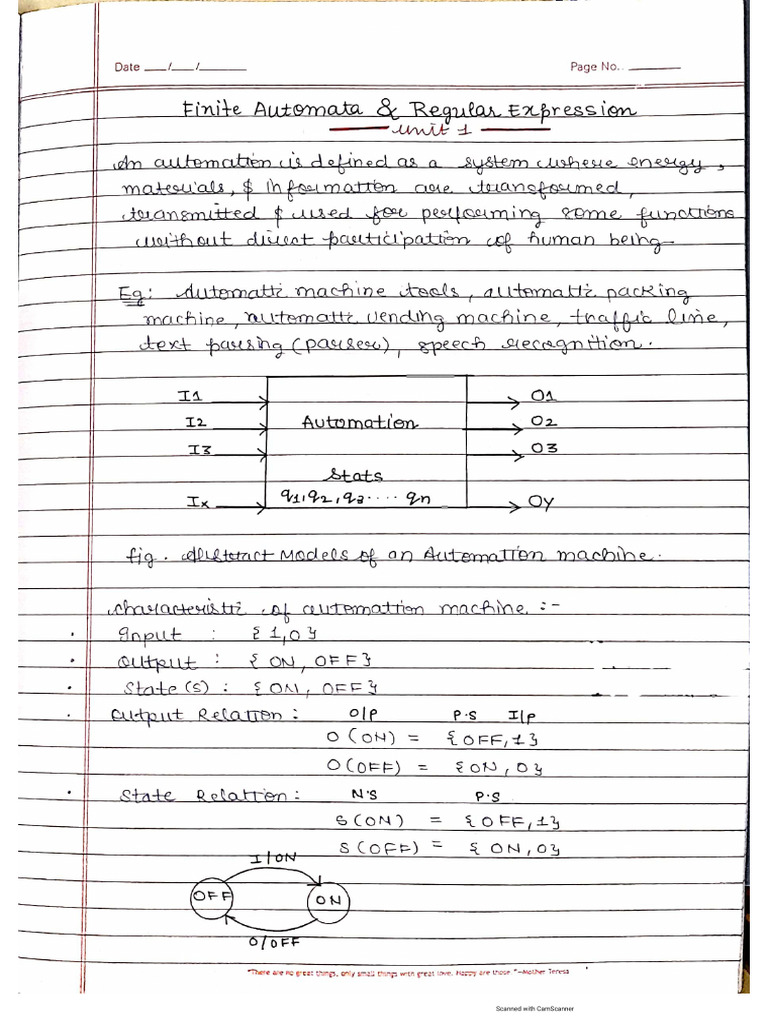 Date __/__/____ Page No.. ______
Finite Automata & Regular Expression
Unit 1
An automation is defined as a system where energy,
materials, & information are transformed,
transmitted & used for performing some functions
without direct participation of human being
Eg: Automatic machine tools, automatic packing
machine, automatic vending machine, traffic line,
text parsing (parser), speech recognition.
I1 O1
I2 Automation O2
I3 O3
Stats
Ix q1, q2, q3.... qn Oy
fig. Abstract Models of an Automation machine.
characteristic of automation machine :-
• Input : {1,0}
• Output : {ON, OFF}
• State(s) : {ON, OFF}
• Output Relation : O/P P.S I/p
O(ON) = {OFF,1}
O(OFF) = {ON,0}
• State Relation : N.S P.S
S(ON) = {OFF,1}
S(OFF) = {ON,0}
I/ON
OFF ON
0/OFF
"There are no great things, only small things with great love. Happy are those."—Mother Teresa
Scanned with CamScanner